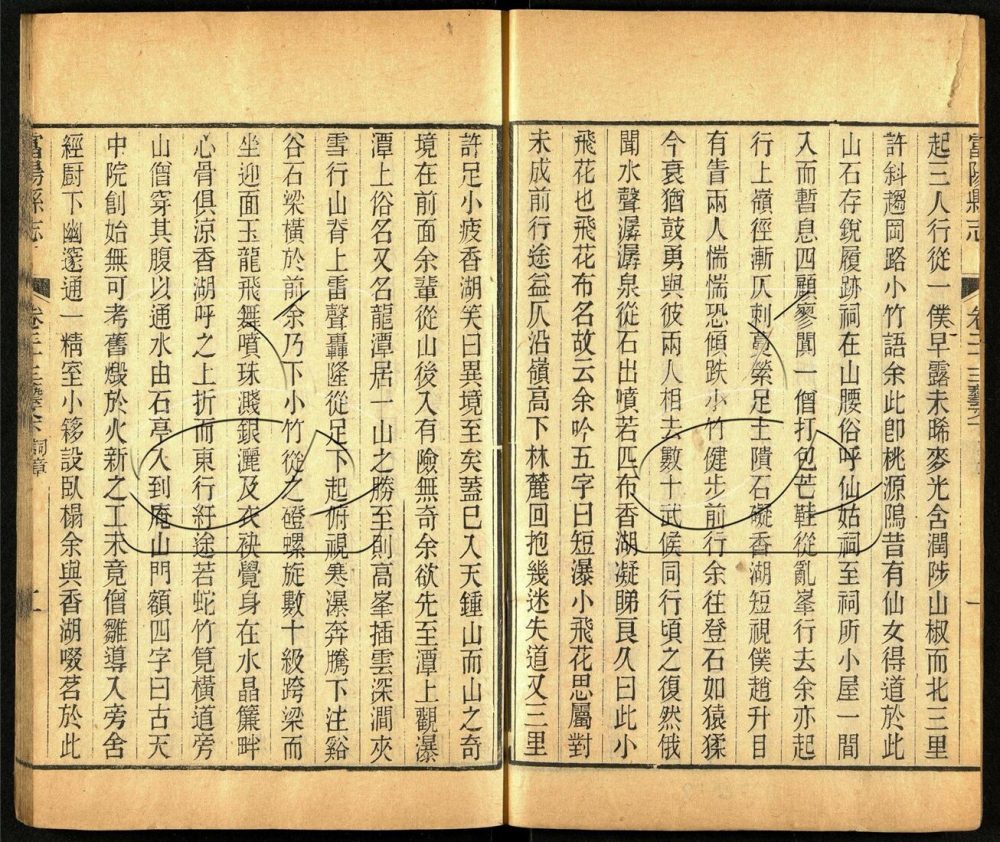 富陽縣志
卷二十三藝文
一
起三人行從一僕早露未晞麥光含潤陟山椒而北三里
許斜趨岡路小竹語余此卽桃源隝昔有仙女得道於此
山石存銳履跡祠在山腰俗呼仙姑祠至祠所小屋一間
入而暫息四顧寥闃一僧打包芒鞋從亂峯行去余亦起
行上嶺徑漸仄刺蔓縈足土隤石礙香湖短視僕趙升目
有眚兩人惴惴恐傾跌小竹健步前行余往登石如猿猱
今衰猶鼓勇與彼兩人相去數十武俟同行頃之復然俄
聞水聲潺潺泉從石出噴若匹布香湖凝睇良久曰此小
飛花也飛花布名故云余吟五字曰短瀑小飛花思屬對
未成前行途益仄沿嶺高下林麓回抱幾迷失道又三里
許足小疲香湖笑曰異境至矣蓋已入天鍾山而山之奇
境在前面余輩從山後入有險無奇余欲先至潭上觀瀑
潭上俗名又名龍潭居一山之勝至則高峯插雲深澗夾
雪行山脊上雷聲轟隆從足下起俯視寒瀑奔騰下注谿
谷石梁橫於前余乃下小竹從之磴螺旋數十級跨梁而
坐迎面玉龍飛舞噴珠濺銀灑及衣袂覺身在水晶簾畔
心骨俱涼香湖呼之上折而東行紆途若蛇竹筧橫道旁
山僧穿其腹以通水由石亭入到庵山門額四字曰古天
中院創始無可考舊燬於火新之工未竟僧雛導入旁舍
經厨下幽邃通一精室小簃設臥榻余與香湖啜茗於此
富陽縣志
卷二十三藝文 詞章
二